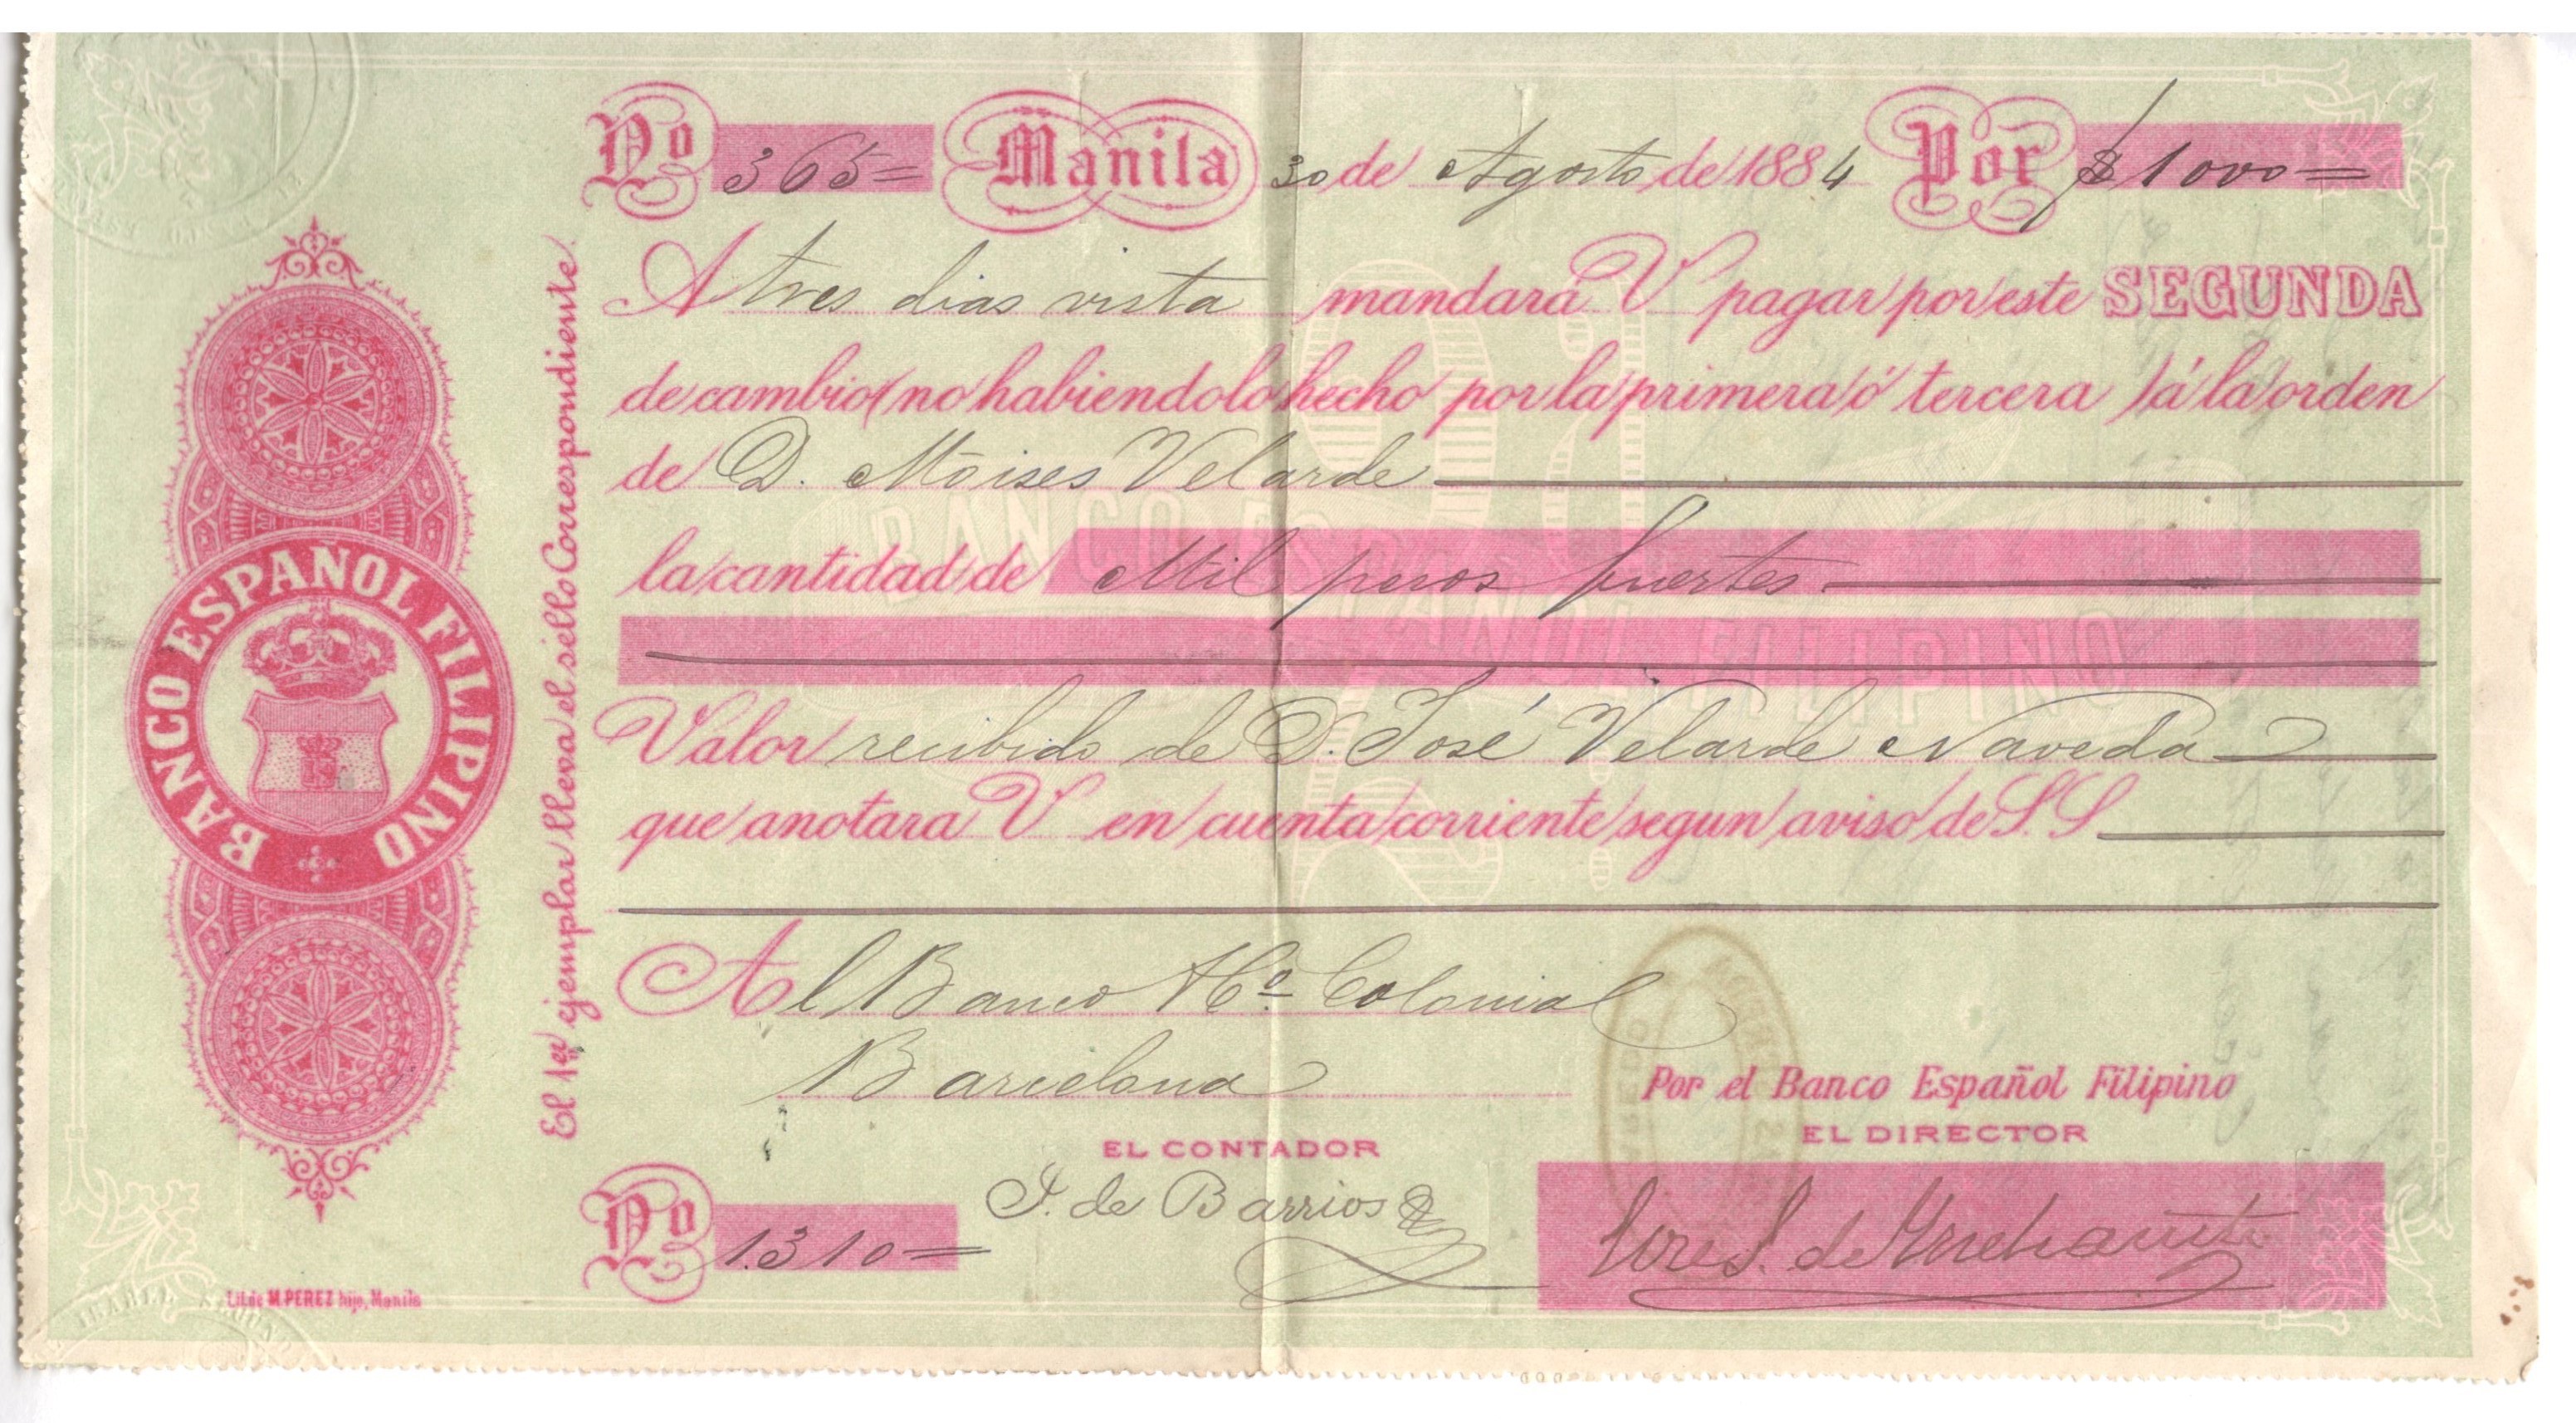 No 365= Manila 30 de Agosto de 1884 Por $1000=
A tres dias vista mandará V pagar por este SEGUNDA
de cambio (no habiendolo hecho por la primera ó tercera) á la orden
de D. Moises Velarde
la cantidad de Mil pesos fuertes
Valor recibido de D. José Velarde Naveda
que anotara V en cuenta corriente segun aviso de S.S.
Al Banco Hº Colonial
Barcelona
Por el Banco Español Filipino
EL CONTADOR
EL DIRECTOR
No 1.310=
de Barrios
BANCO ESPAÑOL FILIPINO
El 1er ejemplar lleva el séllo Correspondiente.
BANCO ESPAÑOL FILIPINO
Lit. de M. PEREZ hijo, Manila